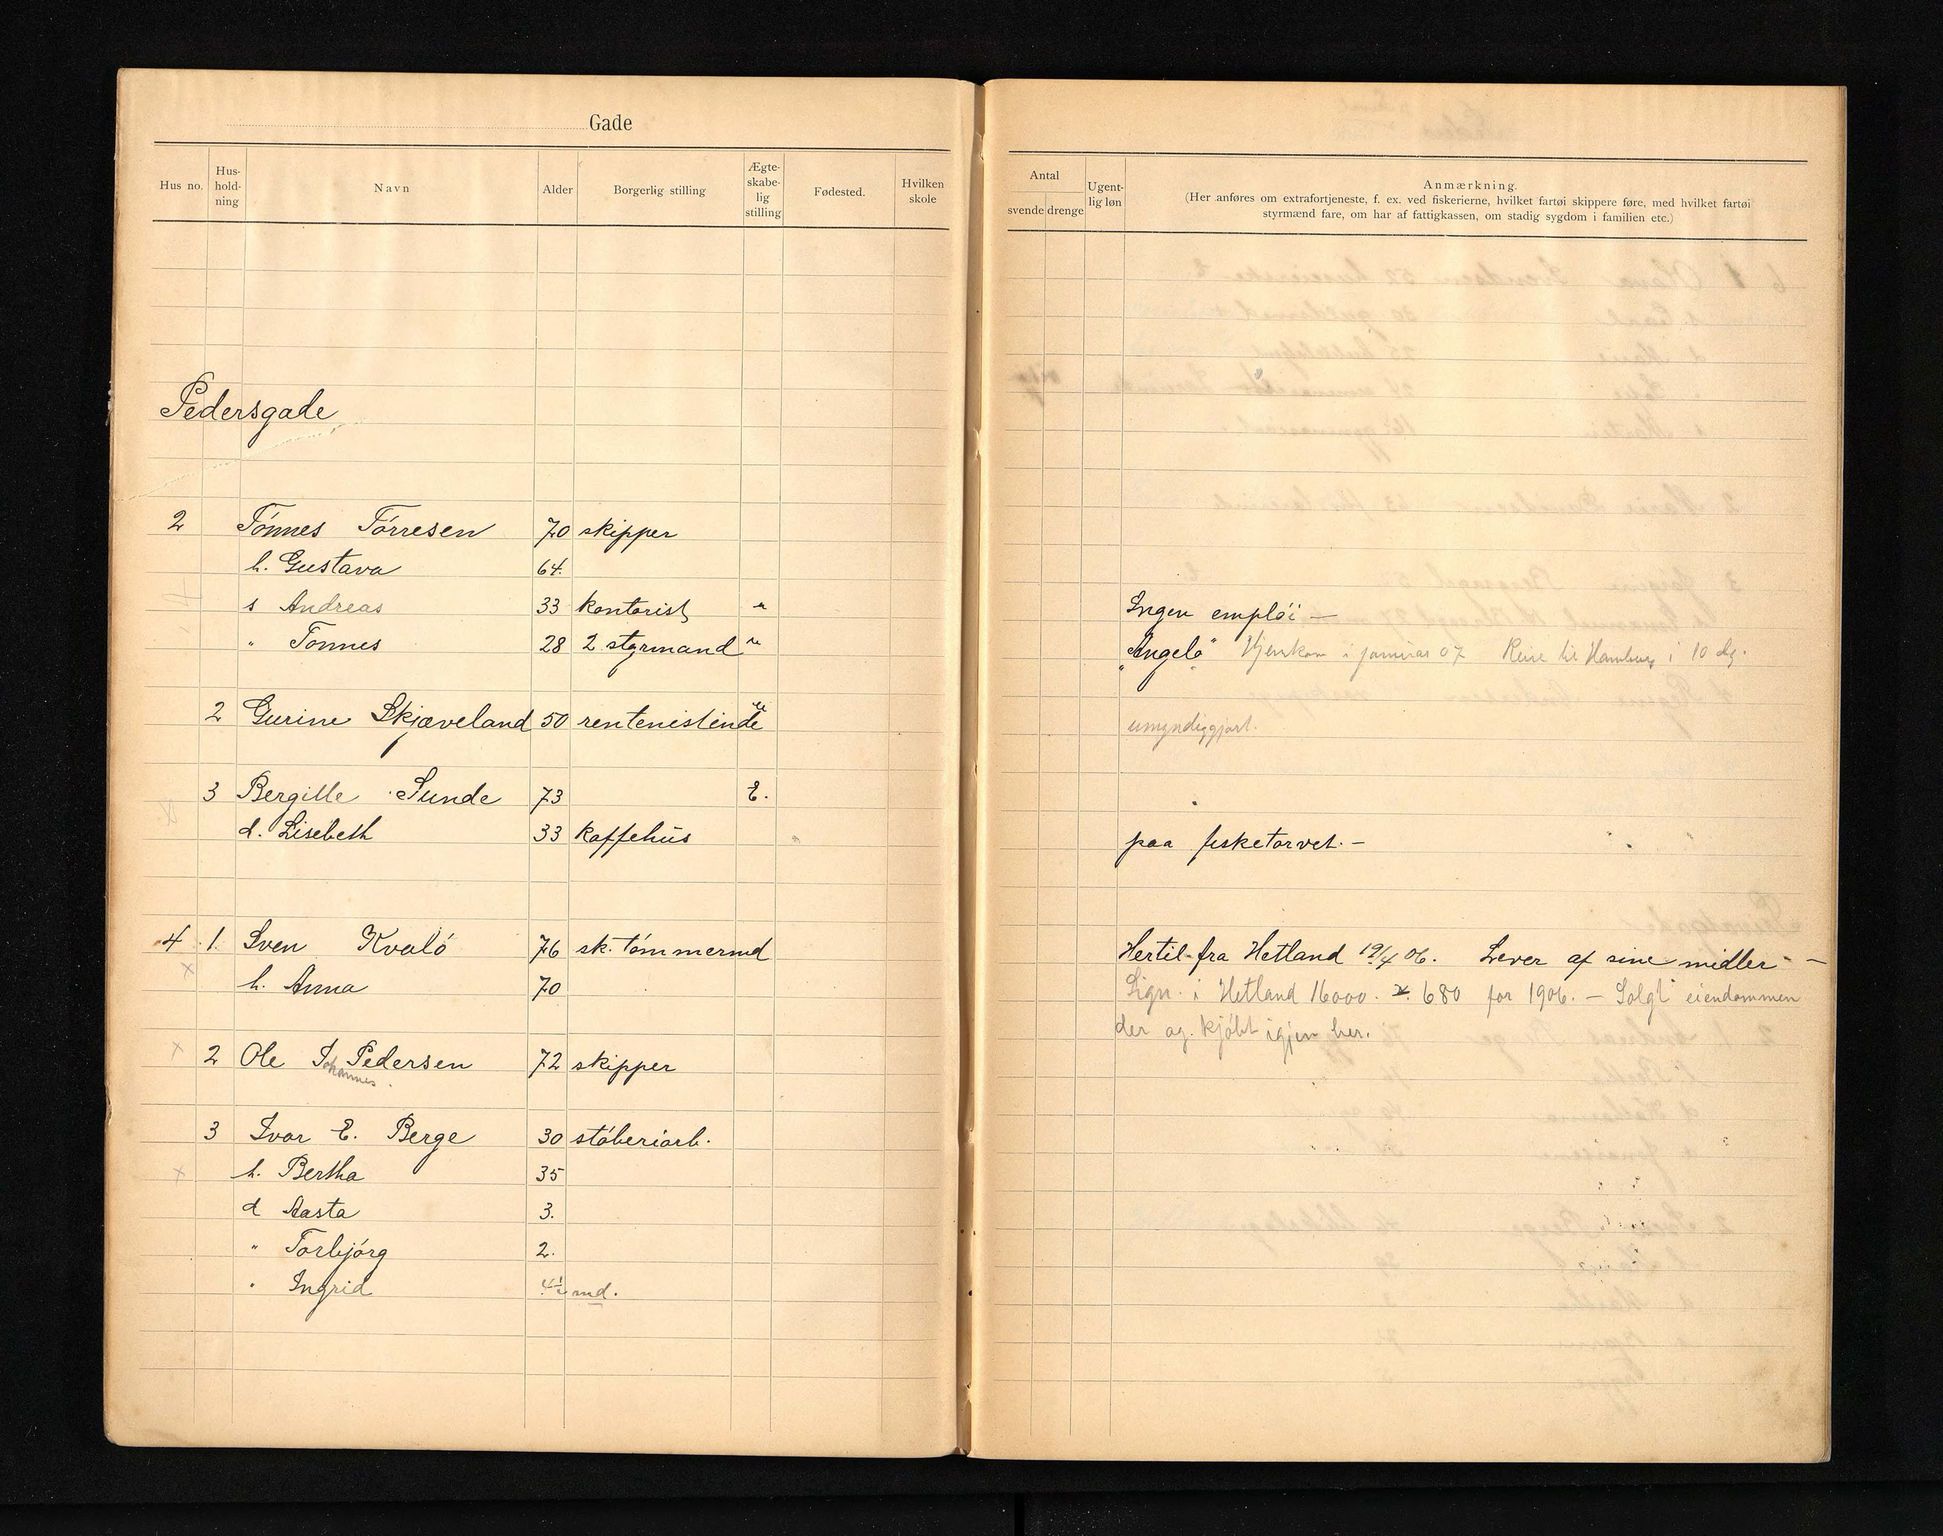 Gade
Hus no. Hus-hold-ning Navn Alder Borgerlig stilling Ægte-skabe-lig stilling Fødested. Hvilken skole
Antal svende drenge Ugent-lig løn Anmærkning.
(Her anføres om extrafortjeneste, f. ex. ved fiskerierne, hvilket fartøi skippere føre, med hvilket fartøi
styrmænd fare, om har af fattigkassen, om stadig sygdom i familien etc.)
Pedersgade
2 Tönnes Törresen 70 skipper
h. Gustava 64.
s Andreas 33 kontorist u Ingen emplöi —
" Tönnes 28 2 styrmand u "Angelo" Hjemkom i januar 07 Reise til Hamburg i 10 dg.
2 Gurine Skjæveland 50 rentenistinde u umyndiggjort.
3 Bergitte Sunde 73 E.
d. Lisebeth 33 kaffehus paa fisketorvet. —
4 1. Sven Kvalö 76 sk. tömmermd Hertil fra Hetland 19/4 06. Lever af sine midler —
h. Anna 70 Lign. i Hetland 16000. 680 for 1906. — Solgt eiendommen
der og kjöbt igjen her.
2 Ole J. Pedersen 72 skipper
Johannes
3 Ivar E. Berge 30 stöberiarb.
h. Bertha 35
d Aasta 3.
" Torbjörg 2.
" Ingrid 4½ md.